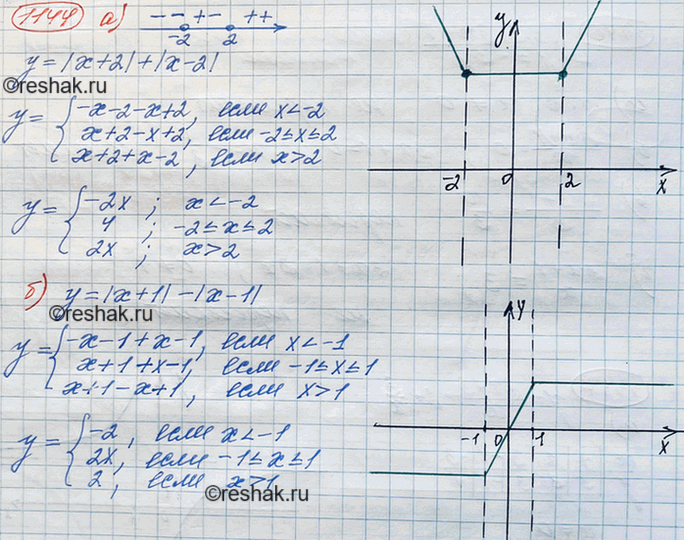 1144 а) - - + - + +
-2 2
y = |x+2| + |x-2|
©reshak.ru
y = { -x-2-x+2, если x < -2
x+2-x+2, если -2 ≤ x ≤ 2
x+2+x-2, если x > 2
y = { -2x ; x < -2
4 ; -2 ≤ x ≤ 2
2x ; x > 2
y
-2 0 2 x
©reshak.ru
б) y = |x+1| - |x-1|
©reshak.ru
y = { -x-1+x-1, если x < -1
x+1+x-1, если -1 ≤ x ≤ 1
x+1-x+1, если x > 1
y = { -2, если x < -1
2x, если -1 ≤ x ≤ 1
2, если x > 1
©reshak.ru
y
-1 0 1 x